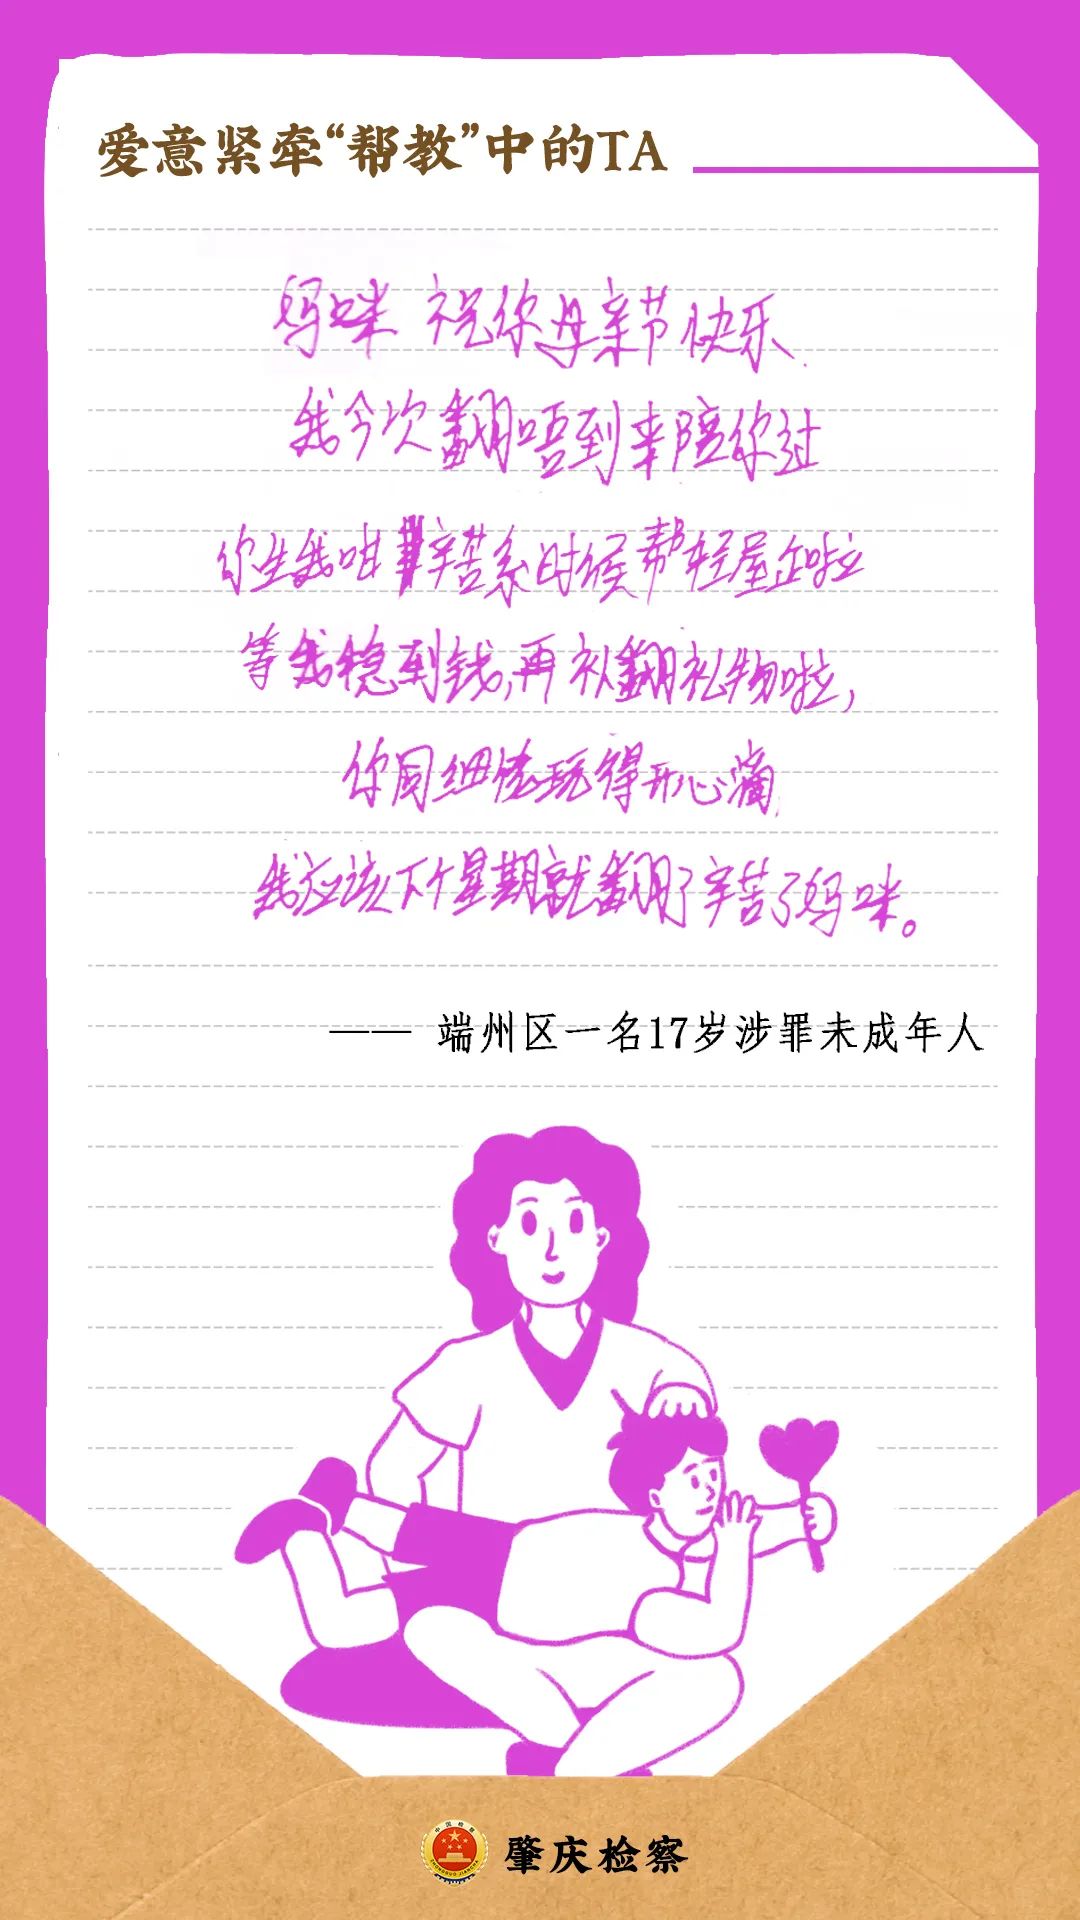 爱意紧牵“帮教”中的TA
妈咪 祝你母亲节快乐
我今次翻唔到来陪你过
你生我咁辛苦系时候帮轻屋企啦
等我稳到钱,再补翻礼物啦,
你同细佬玩得开心滴
我应该下个星期就翻了辛苦了妈咪。
—— 端州区一名17岁涉罪未成年人
肇庆检察